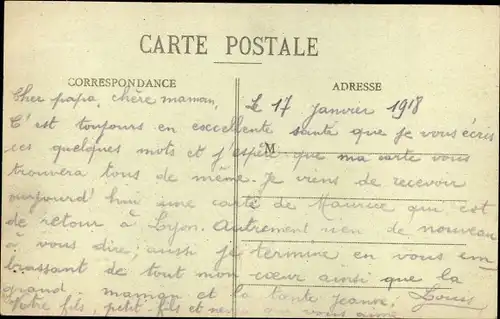 CARTE POSTALE
CORRESPONDANCE
ADRESSE
Cher papa, chère maman, Le 17 janvier 1918
C'est toujours en excellente santé que je vous écris
M
ces quelques mots et j'espère que ma carte vous
trouvera tous de même. Je viens de recevoir
aujourd'hui une carte de Maurice qui est
de retour à Lyon. Autrement rien de nouveau
à vous dire; aussi je termine en vous em-
brassant de tout mon cœur ainsi que la
grand-maman et la tante Jeanne. Louis
Votre fils, petit-fils et neveu qui vous aime